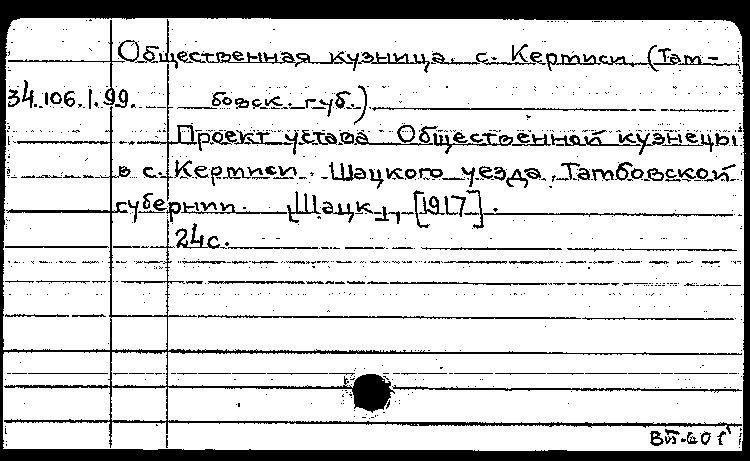 Общественная кузница. с. Кертиси. (Там-
34.106.1.99. бовск. губ.)
Проект устава Общественной кузнецы
в с. Кертиси. Шацкого уезда, Тамбовской
губернии. [Шацк], [1917].
24с.